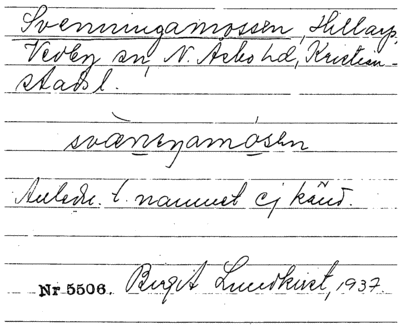 Svenningamossen, Hillarp,
Vedby sn, N. Åsbo hd, Kristian-
stads l.
svænengamosen
Anledn. t. namnet ej känd.
Nr 5506. Birgit Lundkvist, 1937.